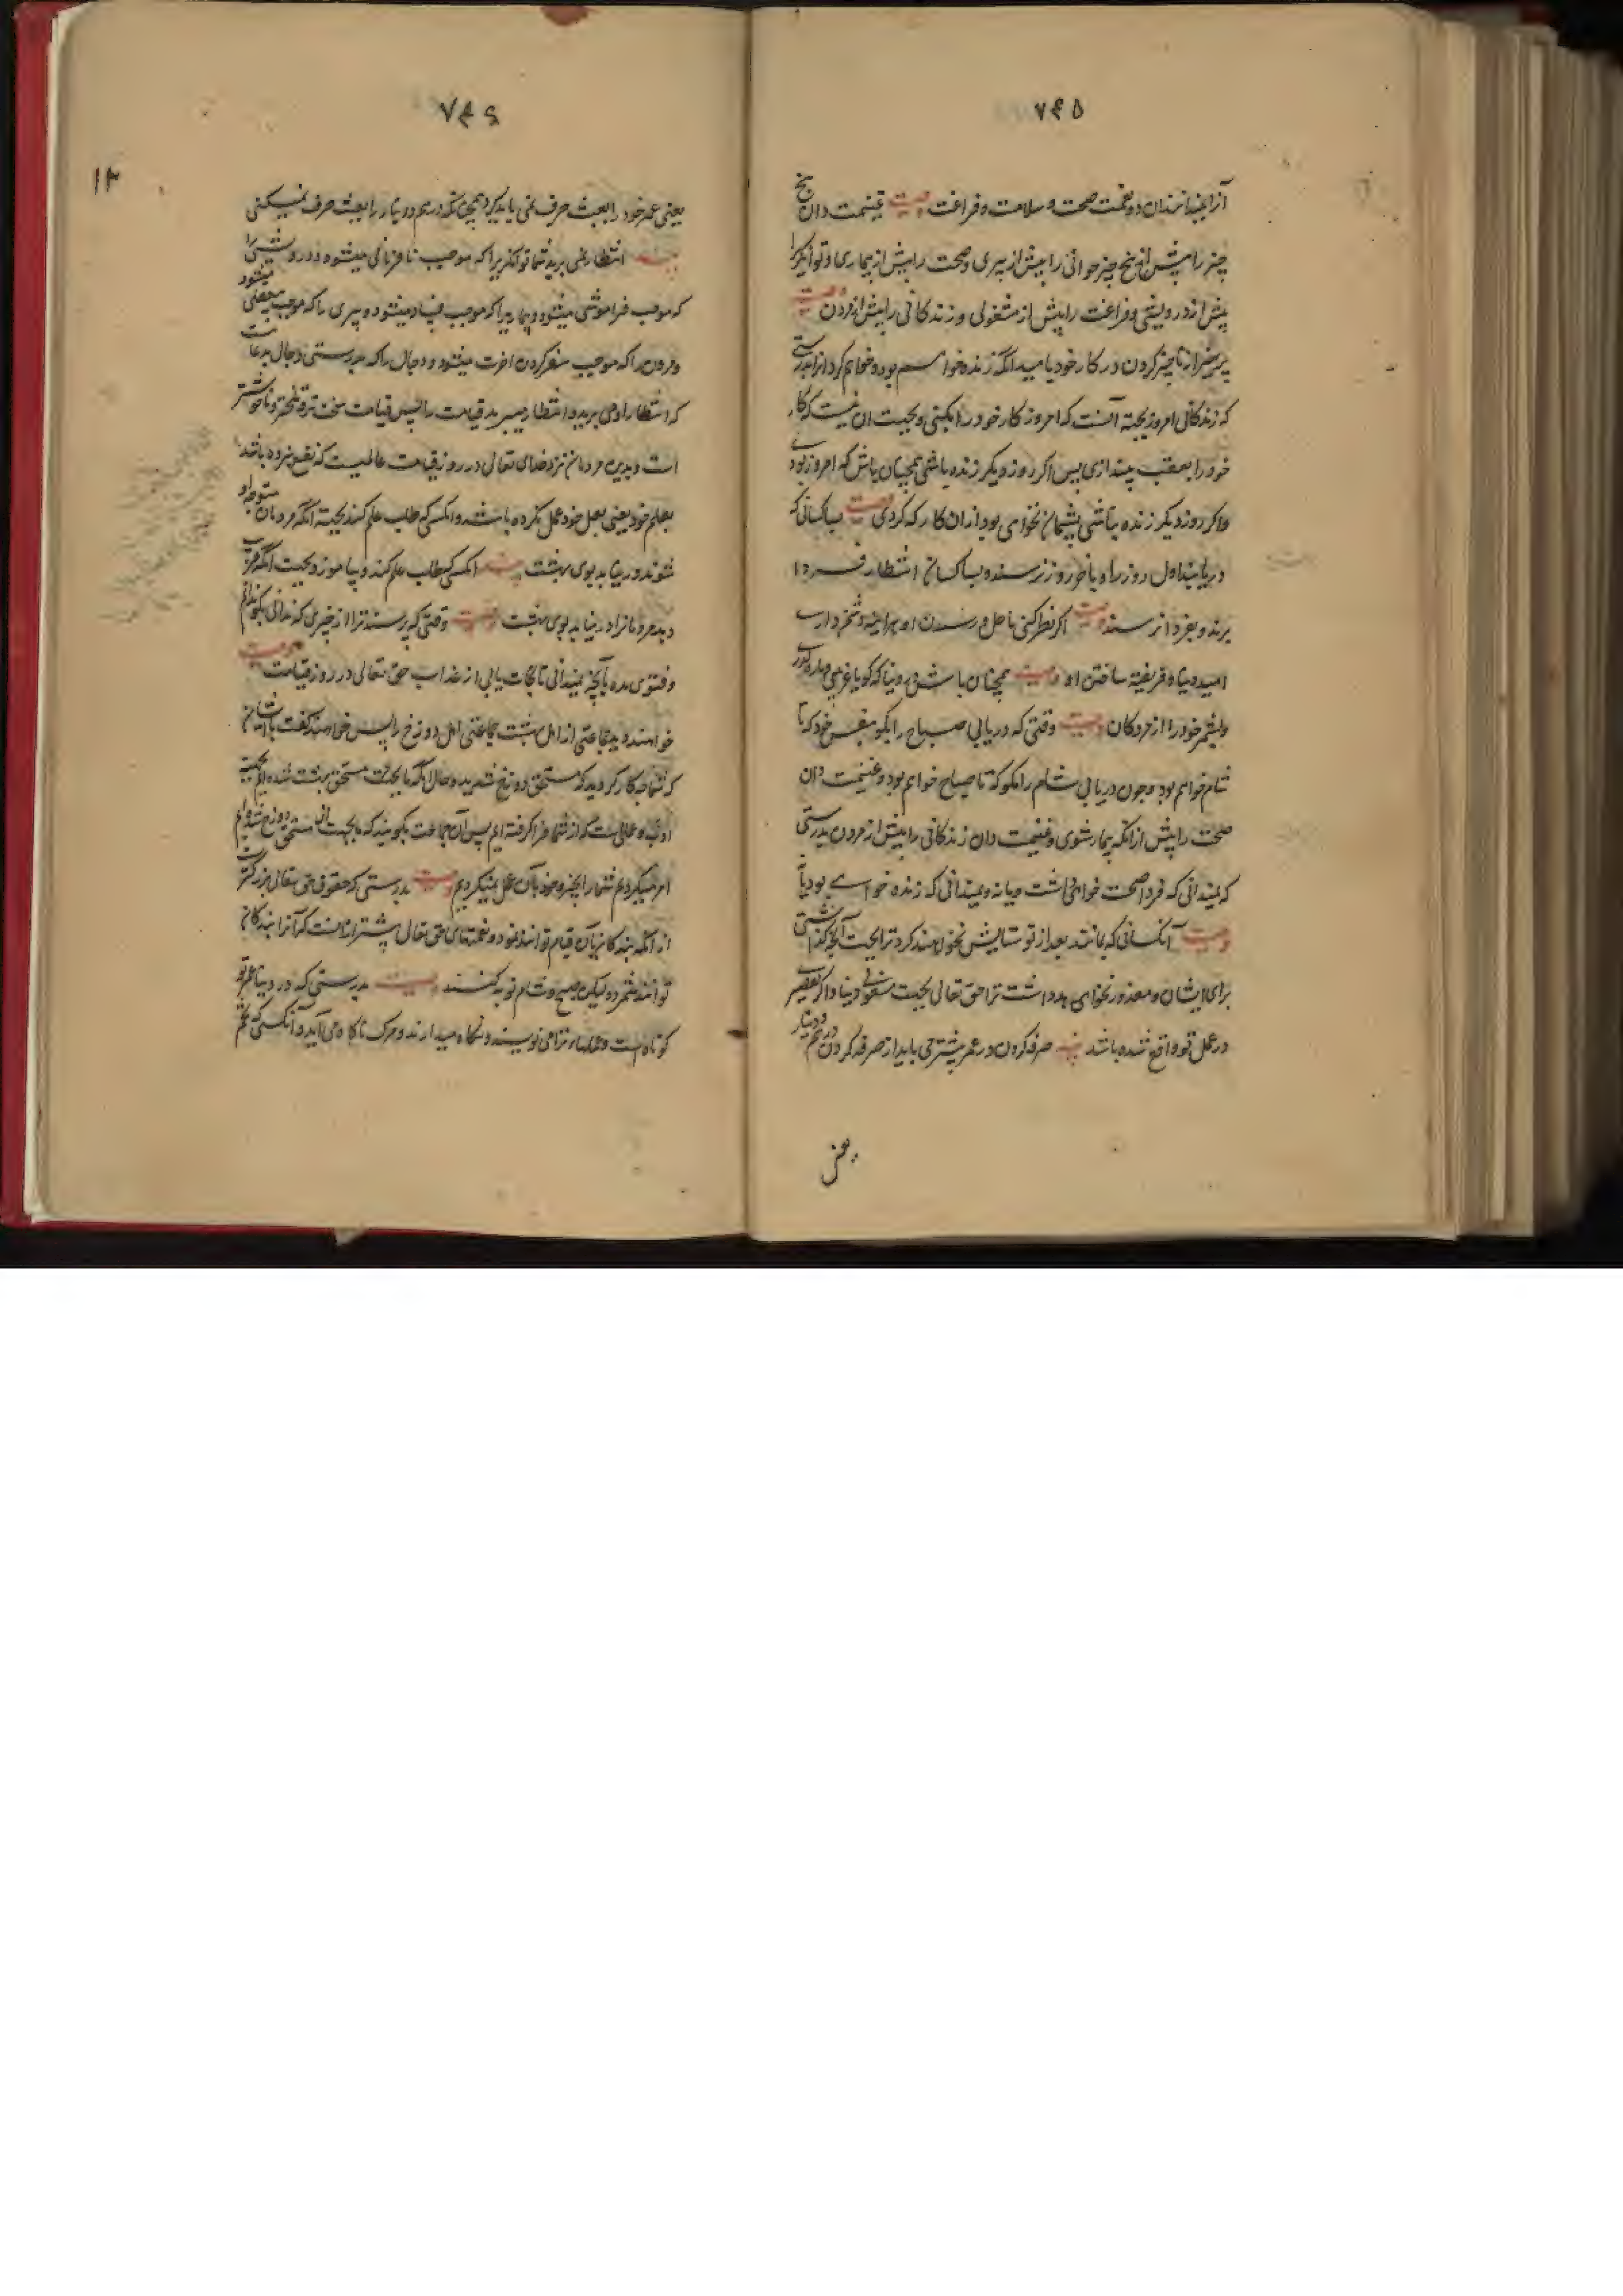 ۷۴۵
آنرا بندانند آن دو نعمت صحت و سلامت و فراغت وصیت غنیمت دان پنج
چیز را پیش از پنج چیز جوانی را پیش از پیری و صحت را پیش از بیماری و توانگری را
پیش از درویشی و فراغت را پیش از مشغولی و زندگانی را پیش از مردن وصیت
بپرهیز از تاخیر کردن در کار خود بامید آنکه زنده خواهم بود و خواهم کرد آنرا بدرستی
که زندگانی امروز بجهة آنست که امروز کار خود را بکنی و بجهت آن نیست که کار
خود را بعقب بیندازی پس اگر روز دیگر زنده باشی همچنان باش که امروز بودی
و اگر روز دیگر زنده نباشی پشیمان نخواهی بود از آن کار که کردی وصیت بسا کسانی که
دریابند اول روز را و بآخر روز نرسند و بسا کسان انتظار فردا
برند و بفردا نرسند وصیت اگر نظر کنی باجل و رسیدن او هر آینه دشمن داری
امید دنیا و فریفته ساختن او وصیت همچنان باش در دنیا که گویا غریبی و یا راه گذری
و بشمر خود را از مردگان وصیت وقتی که دریابی صباح را مگو بنفس خود که تا
شام خواهم بود و چون دریابی شام را مگو که تا صباح خواهم بود و غنیمت دان
صحت را پیش از آنکه بیمار شوی و غنیمت دان زندگانی را پیش از مردن بدرستی
که نمیدانی که فردا صحت خواهی داشت و یا نه و نمیدانی که زنده خواهی بود یا
وصیت آنکسانی که بمانند بعد از تو ستایش نخواهند کرد ترا بجهت آنچه گذاشتی
برای ایشان و معذور نخواهد داشت ترا حق تعالی بجهت مشغولی دنیا و اگر تقصیر
در عمل تو واقع شده باشد وصیت صرفه کردن در عمر بیشتر می باید از صرفه کردن درهم و دینار
یعنی
۷۴۶
۱۳
یعنی عمر خود را بعبث صرف نمی باید کرد همچنانکه درهم و دینار را بعبث صرف نمیکنی
وصیت انتظار نمی برید شما توانگری را که موجب نافرمانی میشود و درویشی را
که موجب فراموشی میشود و بیماری را که موجب فساد میشود و پیری را که موجب میشود
و مردن را که موجب سفر کردن آخرت میشود و دجال را که بدرستی دجال
که انتظار او می برید و انتظار میبرید قیامت را پس قیامت سخت تر و تلخ تر و ناخوشتر
است و بدترین مردمان نزد خدای تعالی در روز قیامت عالمیست که نفع نبرده باشد
بعلم خود یعنی بعلم خود عمل نکرده باشد و آنکسی که طلب علم کند بجهة آنکه مردمان متوجه او
شوند در نیابد بوی بهشت وصیت آنکسی که طلب علم کند و بیاموزد بجهت آنکه فریب
دهد مردمانرا در نیابد بوی بهشت وصیت وقتی که پرسند ترا از چیزی که ندانی بگو نمیدانم
و فتوی مده بآنچه نمیدانی تا نجات یابی از عذاب حق تعالی در روز قیامت وصیت
خواهند دید جماعتی از اهل بهشت جماعتی اهل دوزخ را پس خواهند گفت بایشان
که شما چه کار کردید که مستحق دوزخ شدید و حال آنکه ما بجهت مستحق بهشت شده ایم
ادب و عملی است که از شما فرا گرفته ایم پس آن جماعت بگویند که ما بجهت آن مستحق دوزخ شده ایم
امر میکردیم شما را بخیر و خود بآن عمل نمیکردیم وصیت بدرستی که حقوق حق تعالی بزرگتر است
از آنکه بندگان بآن قیام توانند نمود و نعمتهای حق تعالی بیشتر از آنست که آنرا بندگان
توانند شمرد و لیکن صبح و شام توبه کنند وصیت بدرستی که در دنیا عمر تو
کوتاه است و عملهای ترا می نویسند و نگاه میدارند و مرگ ناگاه می آید و آنکسی که تخم